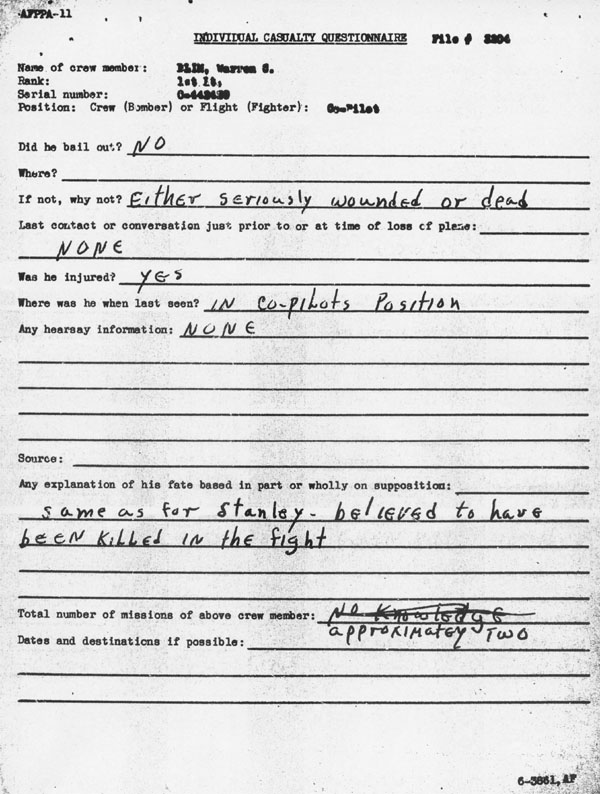 AFPPA-11
INDIVIDUAL CASUALTY QUESTIONNAIRE File # 3204
Name of crew member: BLIM, Warren S.
Rank: 1st Lt,
Serial number:
Position: Crew (Bomber) or Flight (Fighter): Co-Pilot
Did he bail out? NO
Where?
If not, why not? Either seriously wounded or dead
Last contact or conversation just prior to or at time of loss of plane:
NONE
Was he injured? YES
Where was he when last seen? IN Co-pilots Position
Any hearsay information: NONE
Source:
Any explanation of his fate based in part or wholly on supposition:
same as for Stanley - believed to have
been killed in the fight
Total number of missions of above crew member: No Knowledge
approximatey Two
Dates and destinations if possible:
6-3861,AF